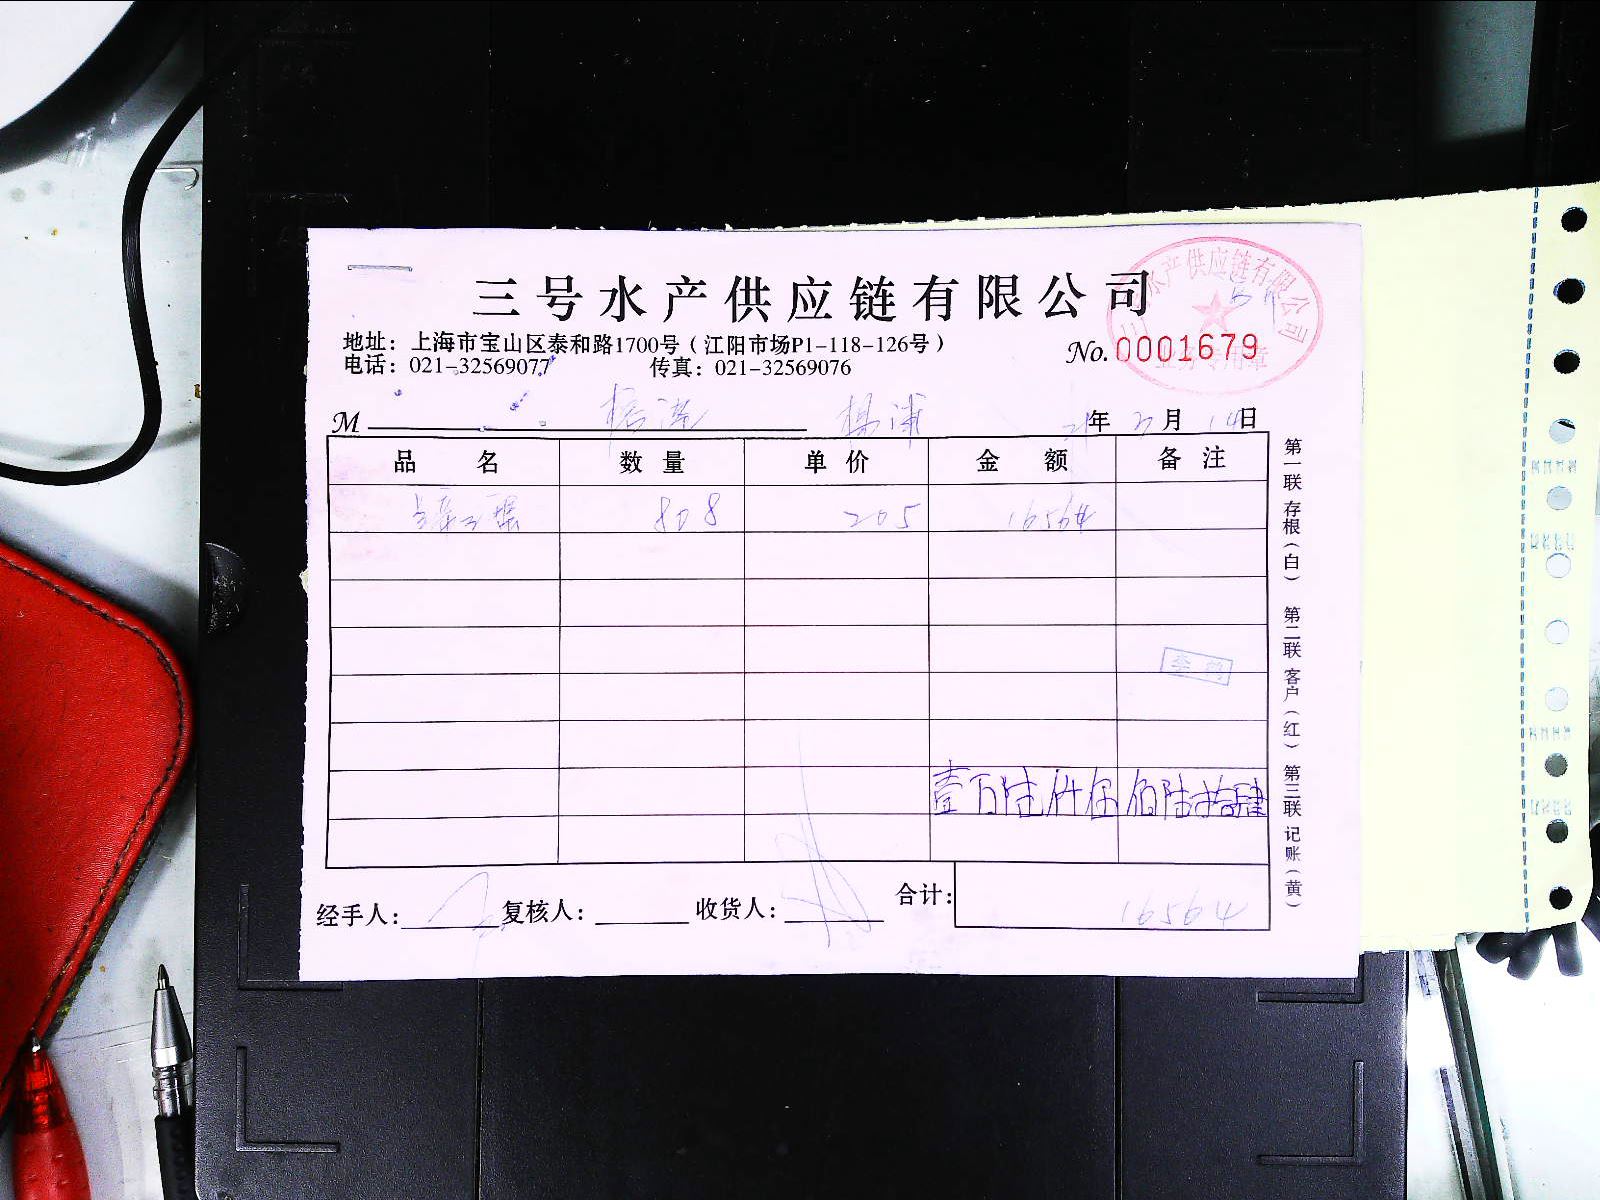 三号水产供应链有限公司
地址：上海市宝山区泰和路1700号（江阳市场P1-118-126号）
电话：021-32569077 传真：021-32569076
No. 0001679
水产供应链有限公司
业务专用章
M 杨浦 21年 月 14日
品名 数量 单价 金额 备注
808 205 16564
李
壹万陆仟伍佰陆拾肆
经手人： 复核人： 收货人： 合计： 16564
第一联 存根（白） 第二联 客户（红） 第三联 记账（黄）